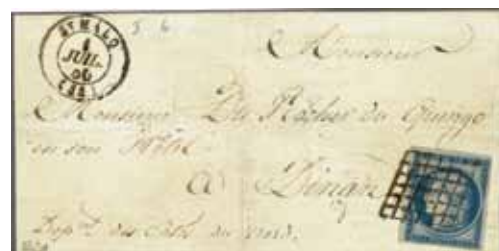 ST MALO
1
JUIL.
50
(34)
5 6
Monsieur
Monsieur Du Rocher du Quengo
en son Hôtel
à Dinan
Dept des Côtes du nord.